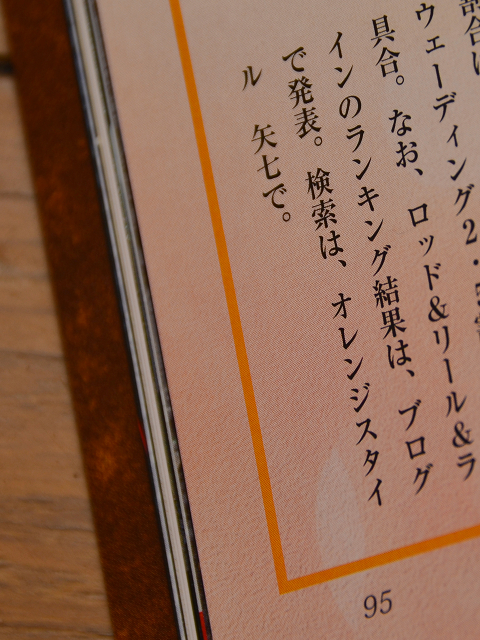 割合は
ウェーディング2・5割
具合。なお、ロッド&リール&ラ
インのランキング結果は、ブログ
で発表。検索は、オレンジスタイ
ル 矢七で。
95